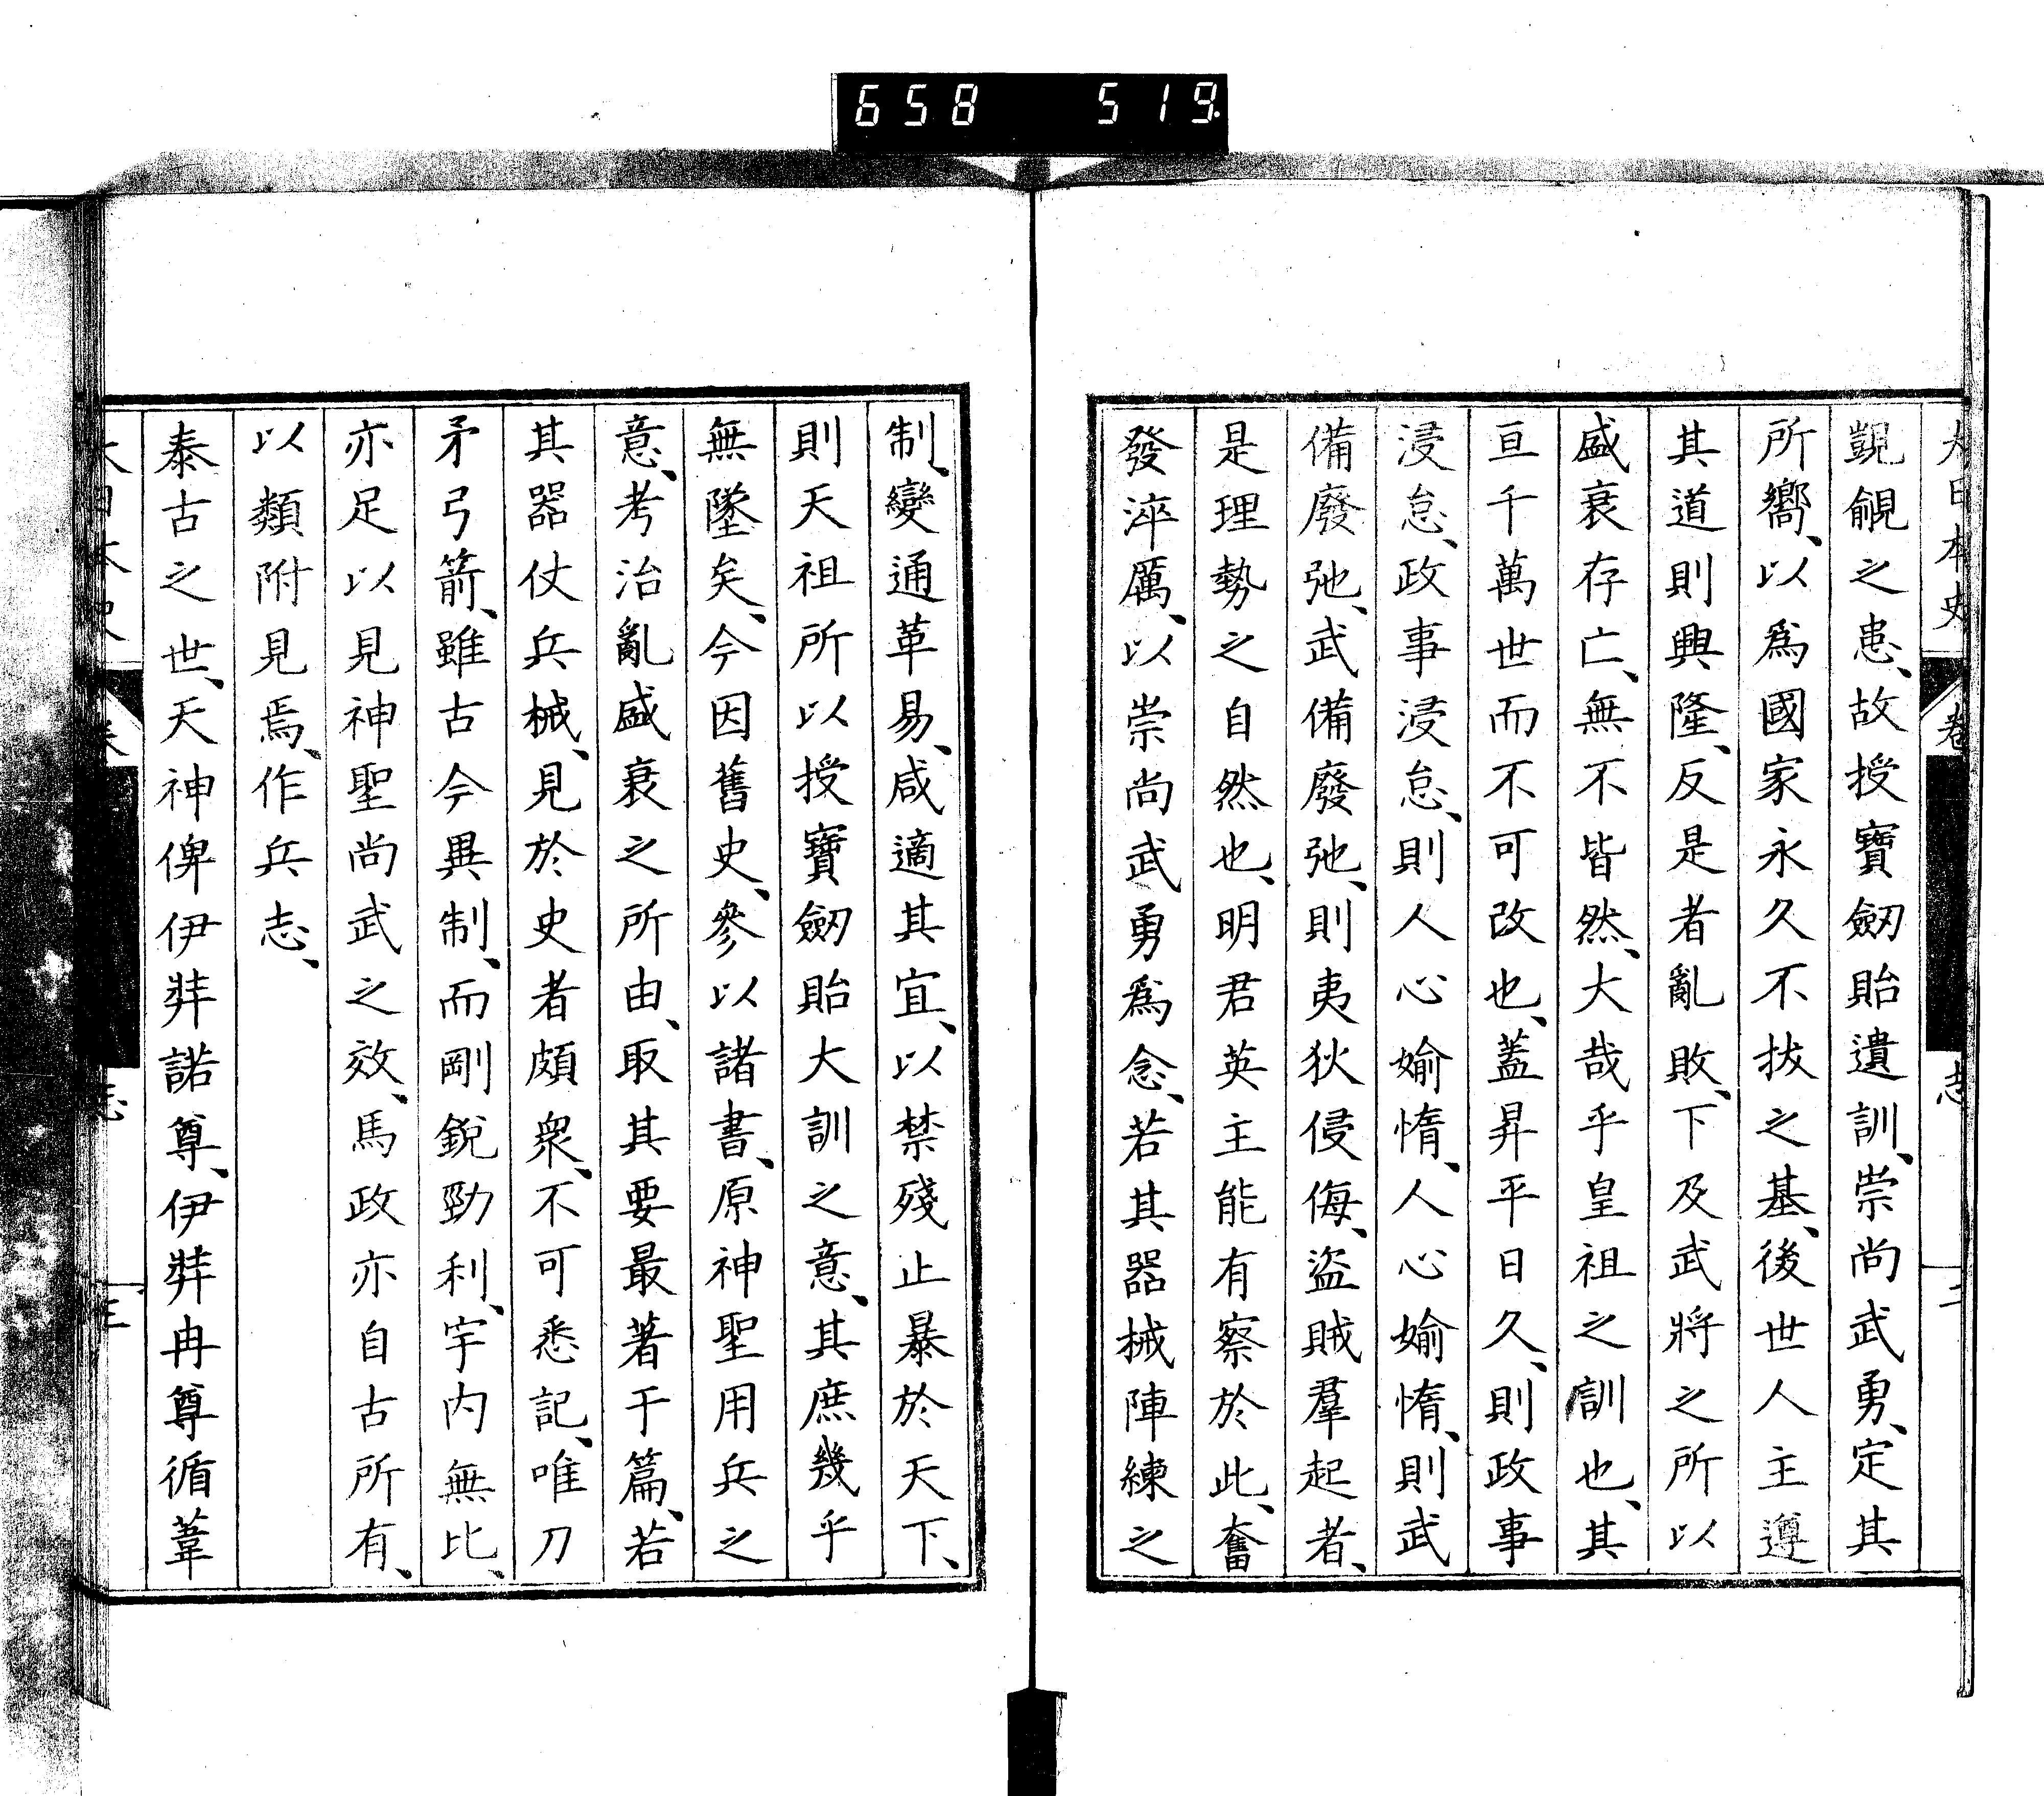 658 519
大日本史 卷 志 二
覬覦之患、故授寶劒貽遺訓、崇尚武勇、定其
所嚮、以爲國家永久不拔之基、後世人主遵
其道則興隆、反是者亂敗、下及武將之所以
盛衰存亡、無不皆然、大哉乎皇祖之訓也、其
亘千萬世而不可改也、蓋昇平日久、則政事
浸怠、政事浸怠、則人心媮惰、人心媮惰、則武
備廢弛、武備廢弛、則夷狄侵侮、盜賊羣起者、
是理勢之自然也、明君英主能有察於此、奮
發淬厲、以崇尚武勇爲念、若其器械陣練之
制、變通革易、咸適其宜、以禁殘止暴於天下、
則天祖所以授寶劒貽大訓之意、其庶幾乎
無墜矣、今因舊史、參以諸書、原神聖用兵之
意、考治亂盛衰之所由、取其要最著于篇、若
其器仗兵械、見於史者頗衆、不可悉記、唯刀
矛弓箭、雖古今異制、而剛銳勁利、宇内無比、
亦足以見神聖尚武之效、馬政亦自古所有、
以類附見焉、作兵志、
泰古之世、天神俾伊弉諾尊、伊弉冉尊循葦